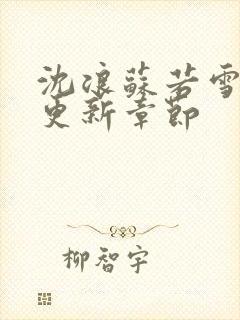 沈浪蘇若雪
更新章節
柳智宇